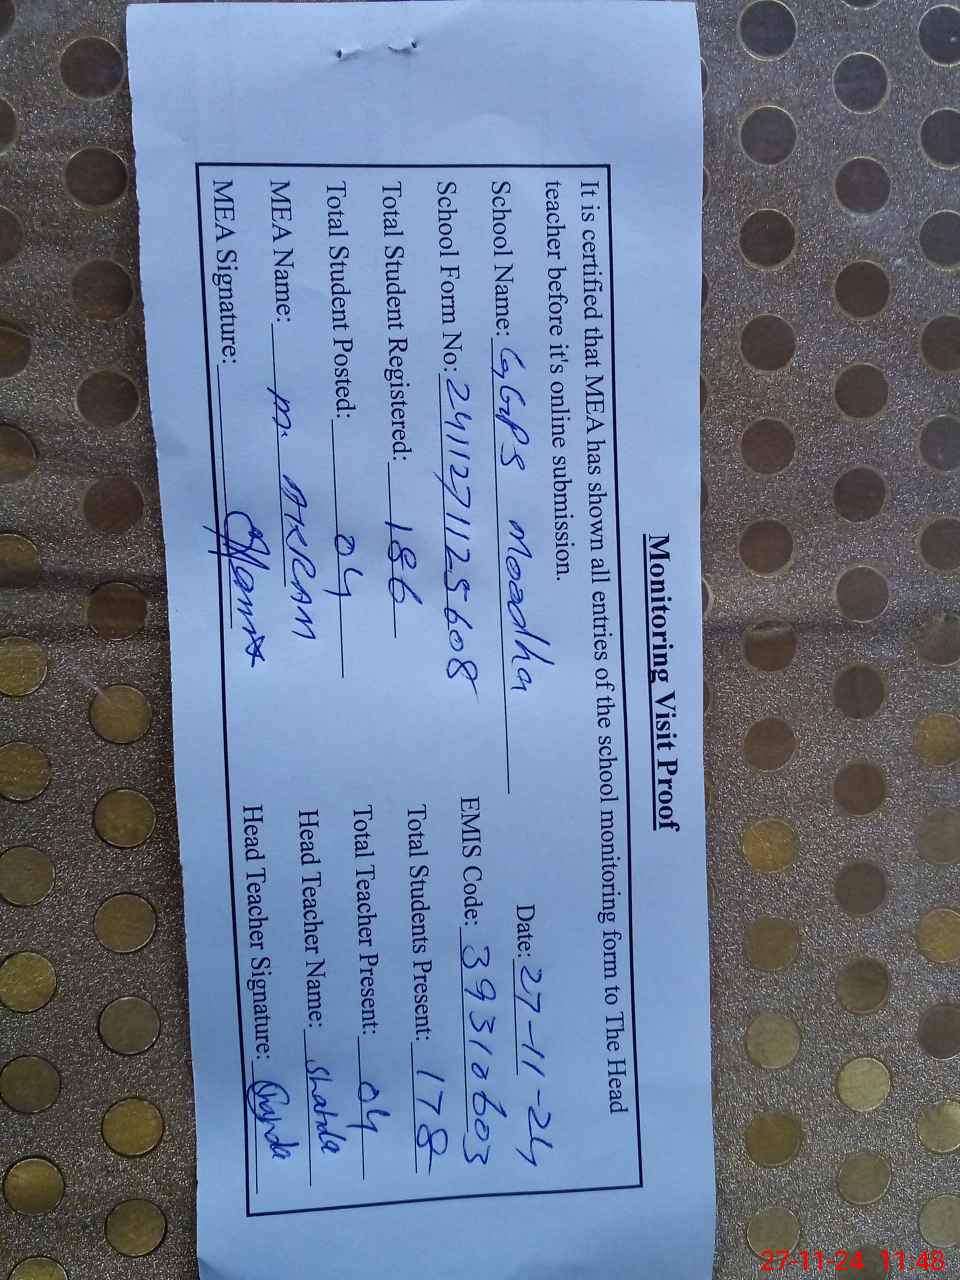 Monitoring Visit Proof
It is certified that MEA has shown all entries of the school monitoring form to The Head
teacher before it's online submission.
Date: 27-11-24
School Name: GGPS Moadha
School Form No: 2411271125608 EMIS Code: 39310603
Total Student Registered: 186 Total Students Present: 178
Total Student Posted: 04 Total Teacher Present: 04
MEA Name: M. AKRAM Head Teacher Name: Shahda
MEA Signature: Head Teacher Signature:
27-11-24 11:48